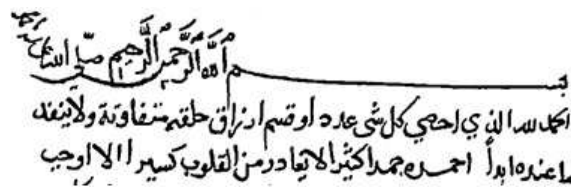 بسم الله الرحمن الرحيم صلى الله على
الحمد لله الذي احصي كل شى عددا وقسم ارزاق خلقه متفاوتة ولا ينفد
ما عنده ابدأ احمده حمدا كثيرا لا يغادر من القلوب كسيرا الا اوجب